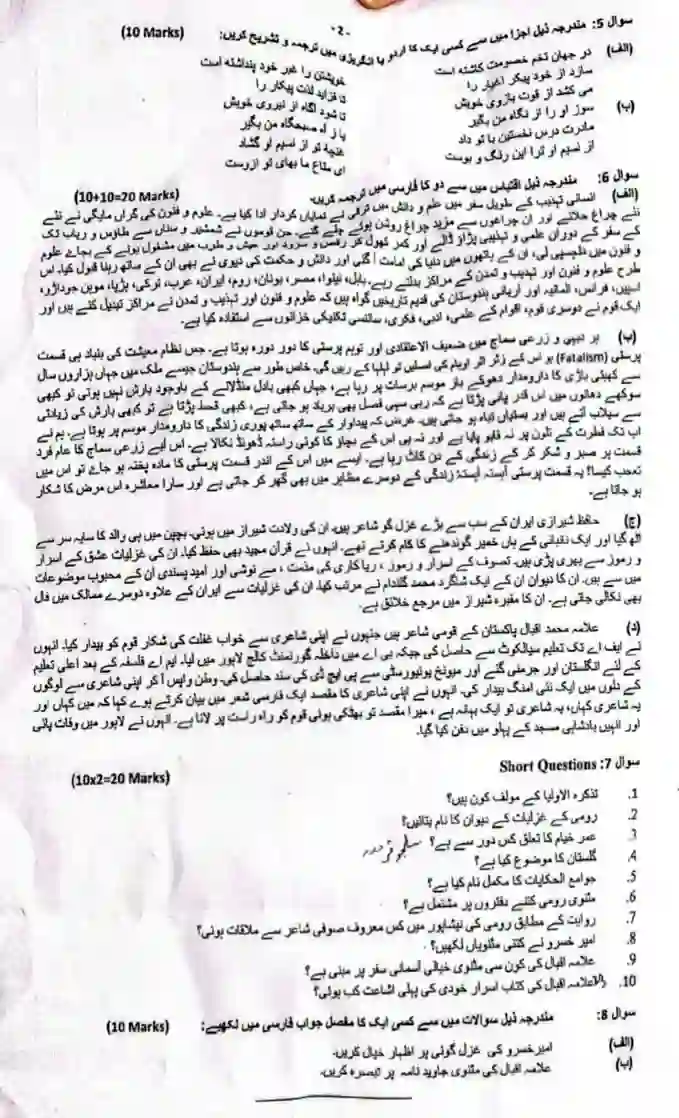 -2-
سوال 5: مندرجہ ذیل اجزا میں سے کسی ایک کا اردو یا انگریزی میں ترجمہ و تشریح کریں: (10 Marks)
(الف) در جہان تخم خصومت کاشتہ است خویشتن را غیر خود پنداشتہ است
سازد از خود پیکر اغیار را تا فزاید لذت پیکار را
می کشد از قوت بازوی خویش تا شود آگاہ از نیروی خویش
(ب) سوز او را از نگاہ من بگیر یا ز آہ صبحگاہ من بگیر
مادرت درس نخستین با تو داد غنچہ تو از نسیم او گشاد
از نسیم او ترا این رنگ و بوست ای متاع ما بہای تو ازوست
سوال 6: مندرجہ ذیل اقتباس میں سے دو کا فارسی میں ترجمہ کریں۔ (10+10=20 Marks)
(الف) انسانی تہذیب کے طویل سفر میں علم و دانش میں ترقی نے نمایاں کردار ادا کیا ہے۔ علوم و فنون کی گراں مایگی نے نئے
نئے چراغ جلائے اور ان چراغوں سے مزید چراغ روشن ہوئے چلے گئے۔ جن قوموں نے شمشیر و سناں سے طاؤس و رباب تک
کے سفر کے دوران علمی و تہذیبی پڑاؤ ڈالے اور کمر کھول کر رقص و سرود اور عیش و طرب میں مشغول ہونے کے بجاے علوم
و فنون میں دلچسپی لی، ان کے ہاتھوں میں دنیا کی امامت آ گئی اور دانش و حکمت کی دیوی نے بھی ان کے ساتھ رہنا قبول کیا۔ اس
طرح علوم و فنون اور تہذیب و تمدن کے مراکز بدلتے رہے۔ بابل، نینوا، مصر، یونان، روم، ایران، عرب، ترکی، ہڑپا، موہن جوداڑو،
اسپین، فرانس، المانیہ اور آریائی ہندوستان کی قدیم تاریخیں گواہ ہیں کہ علوم و فنون اور تہذیب و تمدن نے مراکز تبدیل کئے ہیں اور
ایک قوم نے دوسری قوم، اقوام کے علمی، ادبی، فکری، سائنسی تکنیکی خزانوں سے استفادہ کیا ہے۔
(ب) ہر دیہی و زرعی سماج میں ضعیف الاعتقادی اور توہم پرستی کا دور دورہ ہوتا ہے۔ جس نظام معیشت کی بنیاد ہی قسمت
پرستی (Fatalism) ہو اس کے زیر اثر اوہام کی فصلیں تو لہلہا کے رہیں گی۔ خاص طور سے ہندوستان جیسے ملک میں جہاں ہزاروں سال
سے کھیتی باڑی کا دارومدار دھوکے باز موسم برسات پر رہا ہے، جہاں کبھی بادل منڈلانے کے باوجود بارش نہیں ہوتی تو کبھی
سوکھے دھانوں میں اس قدر پانی پڑتا ہے کہ رہی سہی فصل بھی برباد ہو جاتی ہے، کبھی قحط پڑتا ہے تو کبھی بارش کی زیادتی
سے سیلاب آتے ہیں اور بستیاں تباہ ہو جاتی ہیں۔ غرض کہ پیداوار کے ساتھ ساتھ پوری زندگی کا دارومدار موسم پر ہوتا ہے۔ ہم نے
اب تک فطرت کے تلون پر نہ قابو پایا ہے اور نہ ہی اس کے بچاؤ کا کوئی راستہ ڈھونڈ نکالا ہے۔ اس لیے زرعی سماج کا عام فرد
قسمت پر صبر و شکر کر کے زندگی کے دن کاٹ رہا ہے۔ ایسے میں اس کے اندر قسمت پرستی کا مادہ پختہ ہو جاے تو اس میں
تعجب کیسا؟ یہ قسمت پرستی آہستہ آہستہ زندگی کے دوسرے مظاہر میں بھی گھر کر جاتی ہے اور سارا معاشرہ اس مرض کا شکار
ہو جاتا ہے۔
(ج) حافظ شیرازی ایران کے سب سے بڑے غزل گو شاعر ہیں۔ ان کی ولادت شیراز میں ہوئی۔ بچپن میں ہی والد کا سایہ سر سے
اٹھ گیا اور ایک نانبائی کے ہاں خمیر گوندھنے کا کام کرتے تھے۔ انہوں نے قرآن مجید بھی حفظ کیا۔ ان کی غزلیات عشق کے اسرار
و رموز سے بھری پڑی ہیں۔ تصوف کے اسرار و رموز ، ریا کاری کی مذمت ، مے نوشی اور امید پسندی ان کے محبوب موضوعات
میں سے ہیں۔ ان کا دیوان ان کے ایک شاگرد محمد گلندام نے مرتب کیا۔ ان کی غزلیات سے ایران کے علاوہ دوسرے ممالک میں فال
بھی نکالی جاتی ہے۔ ان کا مقبرہ شیراز میں مرجع خلائق ہے۔
(د) علامہ محمد اقبال پاکستان کے قومی شاعر ہیں جنہوں نے اپنی شاعری سے خواب غفلت کی شکار قوم کو بیدار کیا۔ انہوں
نے ایف اے تک تعلیم سیالکوٹ سے حاصل کی جبکہ بی اے میں داخلہ گورنمنٹ کالج لاہور میں لیا۔ ایم اے فلسفہ کے بعد اعلی تعلیم
کے لئے انگلستان اور جرمنی گئے اور میونخ یونیورسٹی سے پی ایچ ڈی کی سند حاصل کی۔ وطن واپس آ کر اپنی شاعری سے لوگوں
کے دلوں میں ایک نئی امنگ بیدار کی۔ انہوں نے اپنی شاعری کا مقصد ایک فارسی شعر میں بیان کرتے ہوے کہا کہ میں کہاں اور
یہ شاعری کہاں، یہ شاعری تو ایک بہانہ ہے ، میرا مقصد تو بھٹکی ہوئی قوم کو راہ راست پر لانا ہے۔ انہوں نے لاہور میں وفات پائی
اور انہیں بادشاہی مسجد کے پہلو میں دفن کیا گیا۔
سوال 7: Short Questions (10x2=20 Marks)
1. تذکرہ الاولیا کے مولف کون ہیں؟
2. رومی کے غزلیات کے دیوان کا نام بتائیں؟
3. عمر خیام کا تعلق کس دور سے ہے؟
4. گلستان کا موضوع کیا ہے؟
5. جوامع الحکایات کا مکمل نام کیا ہے؟
6. مثنوی رومی کتنے دفتروں پر مشتمل ہے؟
7. روایت کے مطابق رومی کی نیشاپور میں کس معروف صوفی شاعر سے ملاقات ہوئی؟
8. امیر خسرو نے کتنی مثنویاں لکھیں؟
9. علامہ اقبال کی کون سی مثنوی خیالی آسمانی سفر پر مبنی ہے؟
10. علامہ اقبال کی کتاب اسرار خودی کی پہلی اشاعت کب ہوئی؟
سوال 8: مندرجہ ذیل سوالات میں سے کسی ایک کا مفصل جواب فارسی میں لکھیے: (10 Marks)
(الف) امیر خسرو کی غزل گوئی پر اظہار خیال کریں۔
(ب) علامہ اقبال کی مثنوی جاوید نامہ پر تبصرہ کریں۔